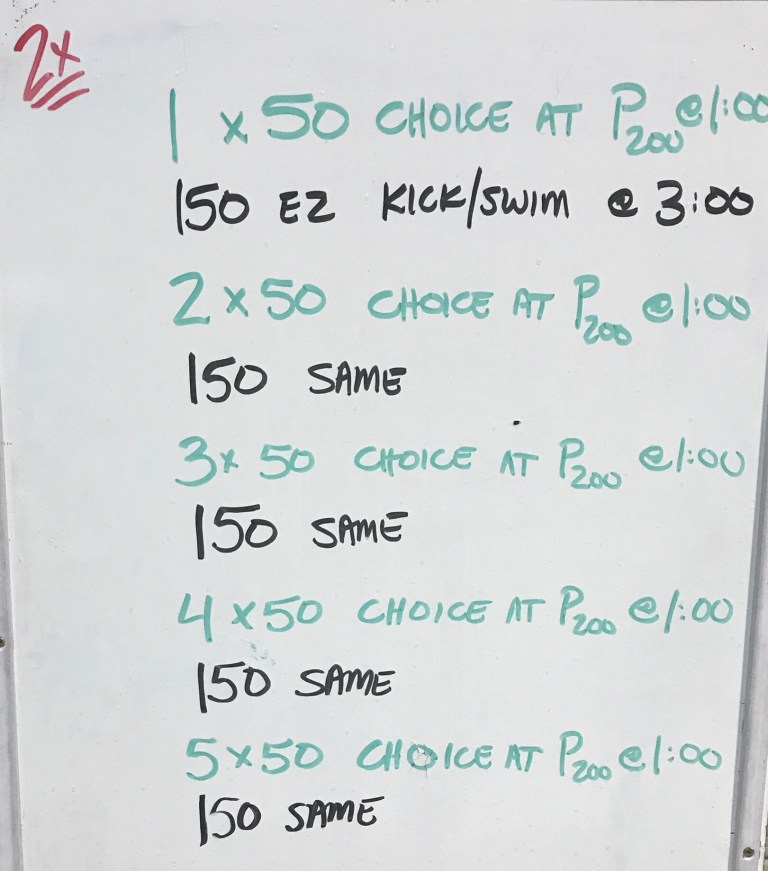 2x
1 x 50 CHOICE AT P200 @ 1:00
150 EZ KICK/SWIM @ 3:00
2 x 50 CHOICE AT P200 @ 1:00
150 SAME
3 x 50 CHOICE AT P200 @ 1:00
150 SAME
4 x 50 CHOICE AT P200 @ 1:00
150 SAME
5 x 50 CHOICE AT P200 @ 1:00
150 SAME